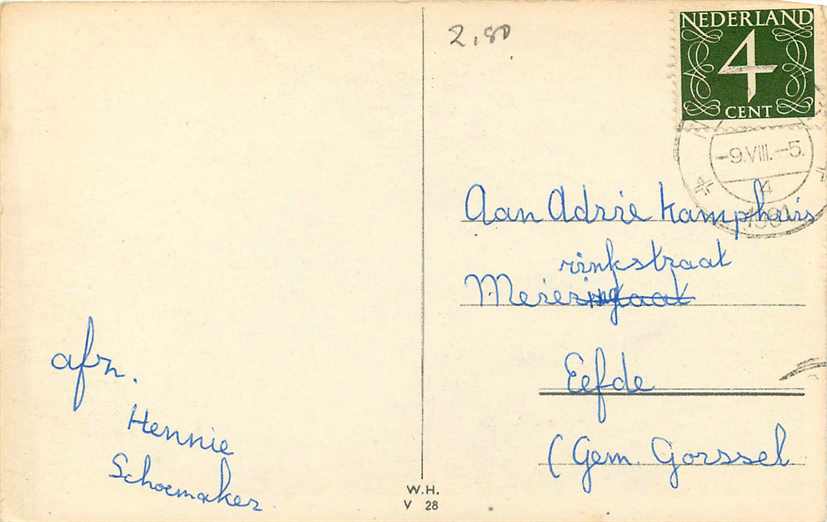 2,80
NEDERLAND
4
CENT
-9.VIII.-5.
4
1961
Aan Adrie Kamphuis
rinkstraat
Meier
Eefde
(Gem. Gorssel
afz.
Hennie
Schoemaker
W.H.
V 28